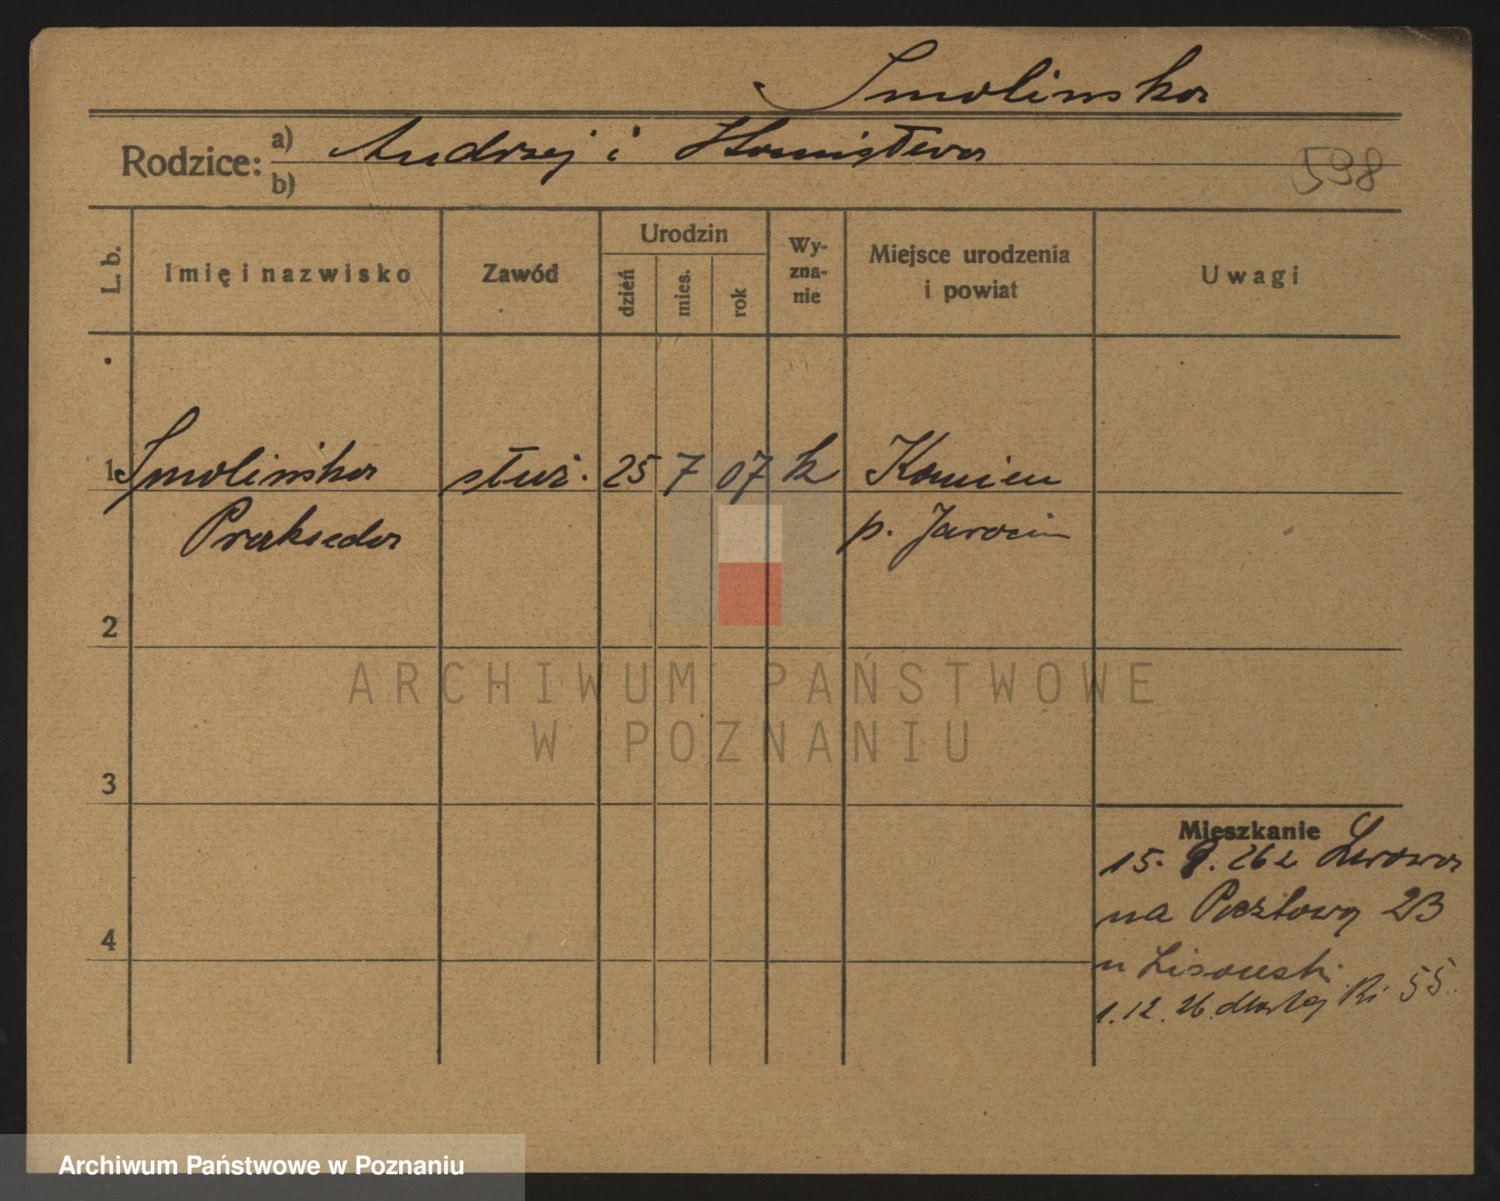 Smolinska
Rodzice: a) Andrzej i Stanisława
b)
598
L. b.
Imię i nazwisko
Zawód
Urodzin
dzień
mies.
rok
Wy-
zna-
nie
Miejsce urodzenia
i powiat
Uwagi
1 Smolinska służ. 25 7 07 k Kamien
Prakseda p. Jarocin
2
ARCHIWUM PAŃSTWOWE
W POZNANIU
3
Mieszkanie
15. 9. 26 z Lwowa
na Pocztową 23
u Lisowski
1.12.26. 55.
4
Archiwum Państwowe w Poznaniu